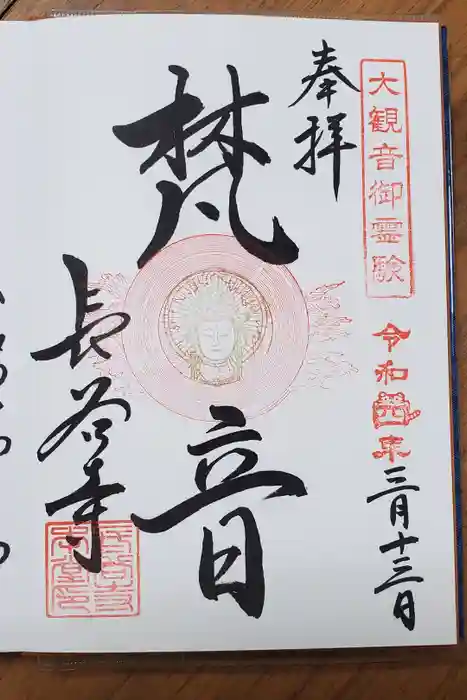 大観音御霊験
令和四年
三月十三日
奉拝
梵音
長谷寺